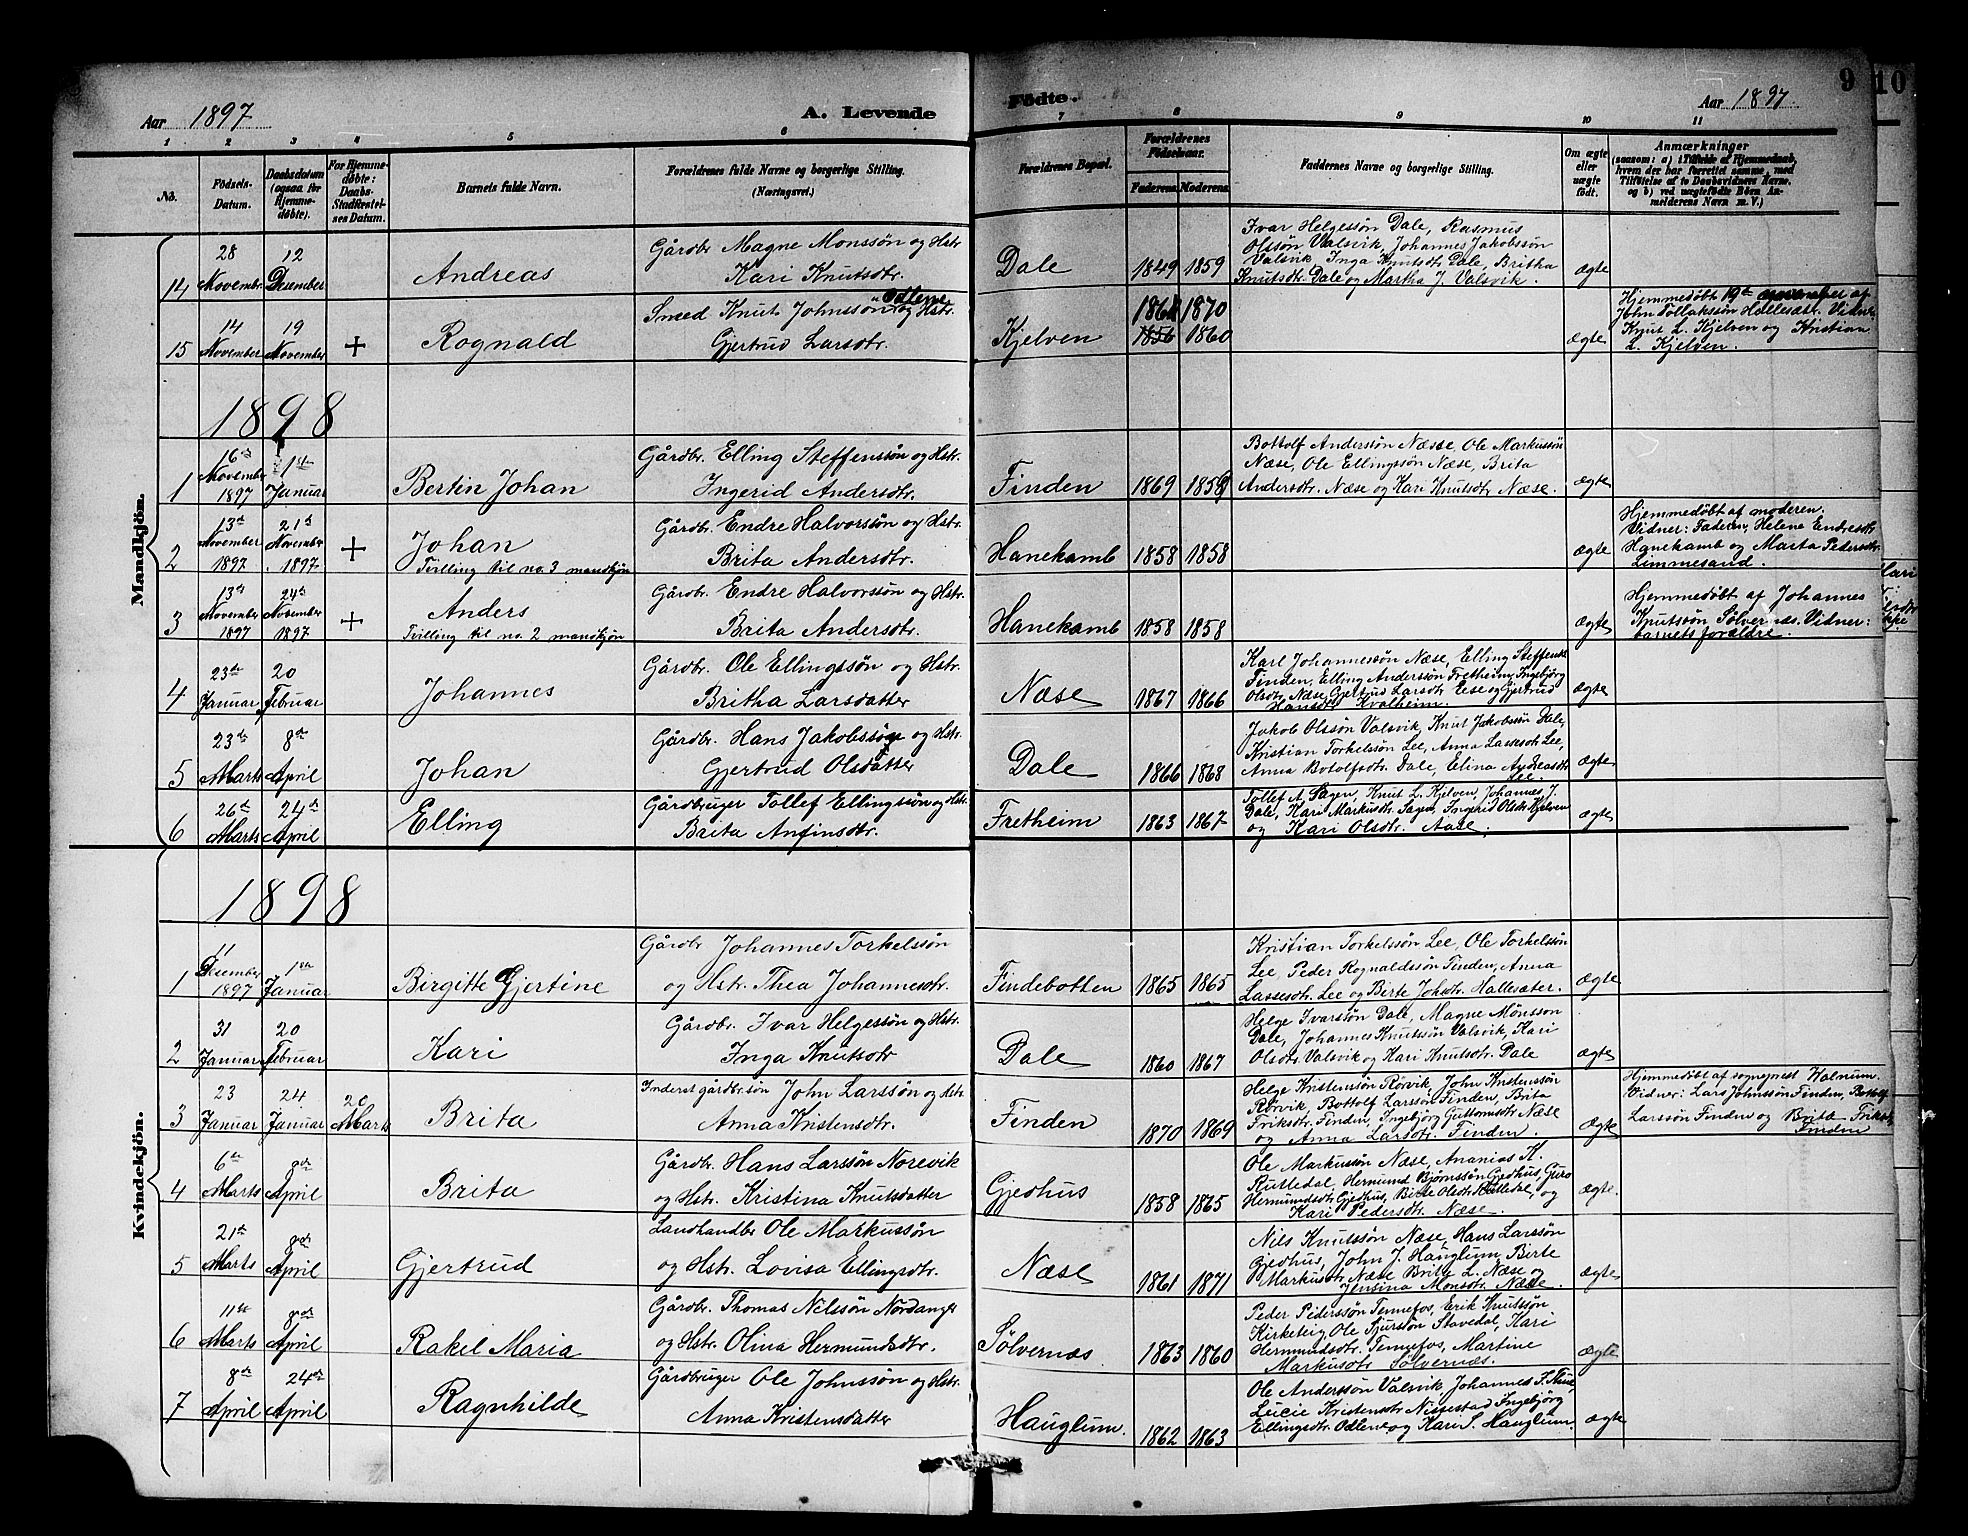 Aar 1897
A. Levende Fødte.
Aar 1897
9
10
1 2 3 4 5 6 7 8 9 10 11
No.
Fødsels-Datum.
Daabsdatum (ogsaa for Hjemmedøbte).
For Hjemmedøbte: Daabs-Stadfæstelses Datum.
Barnets fulde Navn.
Forældrenes fulde Navne og borgerlige Stilling. (Næringsvei.)
Forældrenes Bopæl.
Forældrenes Fødselsaar.
Faderens. Moderens.
Faddernes Navne og borgerlige Stilling.
Om ægte eller uægte født.
Anmærkninger
(saasom: a) i Tilfælde af Hjemmedaab, hvem der har forrettet samme, med Tilføielse af to Daabsvidners Navne, og b) ved uægtefødte Børn Anmelderens Navn m. V.)
Mandkjön.
14 28 November 12 Desember
Andreas
Gårdbr. Magne Monssøn og Hstr.
Kari Knutsdtr.
Dale 1849 1859
Ivar Helgessøn Dale, Rasmus
Olssøn Valsvik, Johannes Jakobssøn
Valsvik, Inga Knutsdtr. Dale, Britha
Knutsdtr. Dale og Martha J. Valsvik.
ægte
15 14 November 19 November +
Rognald
Smed Knut Johnssøn Odlerne og Hstr.
Gjertrud Larsdtr.
Kjelven 1861 1870
1856 1860
ægte
Hjemmedøbt 19de november af
John Tollakssøn Hellesæter. Vidner:
Knut L. Kjelven og Kristian
L. Kjelven.
1898
1 16de November 1897 1ste Januar
Bertin Johan
Gårdbr. Elling Steffenssøn og Hstr.
Ingerid Andersdtr.
Finden 1869 1859
Bottolf Anderssøn Næse, Ole Markussøn
Næse, Ole Ellingssøn Næse, Brita
Andersdtr. Næse og Kari Knutsdtr. Næse.
ægte
2 13de November 1897 21de November 1897 +
Johan
Tvilling til no. 3 mandkjøn
Gårdbr. Endre Halvorssøn og Hstr.
Brita Andersdtr.
Hanekamb 1858 1858
ægte
Hjemmedøbt af moderen.
Vidner: Faderen, Helene Endresdtr.
Hanekamb og Marta Pedersdtr.
Limmesand.
3 13de November 1897 24de November 1897 +
Anders
Tvilling til no. 2 mandkjøn
Gårdbr. Endre Halvorssøn og Hstr.
Brita Andersdtr.
Hanekamb 1858 1858
ægte
Hjemmedøbt af Johannes
Knutssøn Sølvernæs. Vidner:
barnets forældre.
4 23de Januar 20 Februar
Johannes
Gårdbr. Ole Ellingssøn og Hstr.
Britha Larsdatter
Næse 1867 1866
Karl Johannessøn Næse, Elling Steffenss.
Finden, Elling Anderssøn Fretheim, Ingebjörg
Olsdtr. Næse, Gjertrud Larsdtr. Ese og Gjertrud
Hansdtr. Kvalheim.
ægte
5 23de Marts 8de April
Johan
Gårdbr. Hans Jakobssøn og Hstr.
Gjertrud Olsdatter
Dale 1866 1868
Jakob Olssøn Valsvik, Knut Jakobssøn Dale,
Kristian Torkelssøn Lee, Anna Lassesdtr. Lee,
Anna Botolfsdtr. Dale, Elina Andreasdtr.
Lee.
ægte
6 26de Marts 24de April
Elling
Gårdbruger Tollef Ellingssøn og Hstr.
Brita Anfinsdtr.
Fretheim 1863 1867
Tollef A. Sagen, Knut L. Kjelven, Johannes J.
Dale, Kari Markusdtr. Sagen, Ingerid Olsdtr. Kjelven
og Kari Olsdtr. Aase.
ægte
Kvindekjön.
1898
1 11 Desember 1897 1ste Januar
Birgitte Gjertine
Gårdbr. Johannes Torkelssøn
og Hstr. Thea Johannesdtr.
Findebotten 1865 1865
Kristian Torkelssøn Lee, Ole Torkelssøn
Lee, Peder Rognaldssøn Finden, Anna
Lassesdtr. Lee og Birte Johsdtr. Hallesæter.
ægte
2 31 Januar 20 Februar
Kari
Gårdbr. Ivar Helgessøn og Hstr.
Inga Knutsdtr
Dale 1860 1867
Helge Ivarssøn Dale, Magne Mønsson
Dale, Johannes Knutssøn Valsvik, Kari
Olsdtr. Valsvik og Kari Knutsdtr. Dale
ægte
3 23 Januar 24 Januar 20 Marts
Brita
Inderst gårdbr.søn John Larssøn og Hstr.
Anna Kristensdtr.
Finden 1870 1869
Helge Kristenssøn Rørvik, John Kristenssøn
Rørvik, Bottolf Larssøn Finden, Brita
Friksdtr. Finden, Ingebjörg Guttormsdtr. Næse
og Anna Larsdtr. Finden.
Ægte
Hjemmedøbt af sogneprest Halnum.
Vidner: Lars Johnssøn Finden, Bottolf
Larssøn Finden og Brita Friksdtr.
Finden
4 6te Marts 8de April
Brita
Gårdbr. Hans Larssøn Norevik
og Hstr. Kristina Knutsdatter
Gjedhus 1858 1865
Ole Markussøn Næse, Ananias K.
Rutledal, Hermund Bjørnssøn Gjedhus, Guro
Hermundsdtr. Gjedhus, Birte Olsdtr. Rutledal, og
Kari Pedersdtr. Næse.
ægte.
5 21de Marts 8de April
Gjertrud
Landhandler Ole Markussøn
og Hstr. Lovisa Ellingsdtr.
Næse 1861 1871
Nils Knutssøn Næse, Hans Larssøn
Gjedhus, John J. Hauglum, Birte
Markusdtr. Næse, Brita L. Næse og
Jensina Monsdtr. Næse.
ægte
6 11te Marts 8de April
Rakel Maria
Gårdbr. Thomas Nilssøn Nordanger
og Hstr. Olina Hermundsdtr.
Sølvernæs 1863 1860
Peder Pederssøn Tennefos, Erik Knutssøn
Kirketeig, Ole Sjurssøn Stavedal, Kari
Hermundsdtr. Tennefos, Martine
Markusdtr. Sølvernæs.
ægte
7 8de April 24de April
Ragnhilde
Gårdbruger Ole Johnssøn og Hstr.
Anna Kristensdatter
Hauglum. 1862 1863
Ole Anderssøn Valsvik, Johannes T.
Lucie Kristensdtr. Nissestad, Ingebjörg
Ellingsdtr. Odlene og Kari S. Hauglum.
ægte